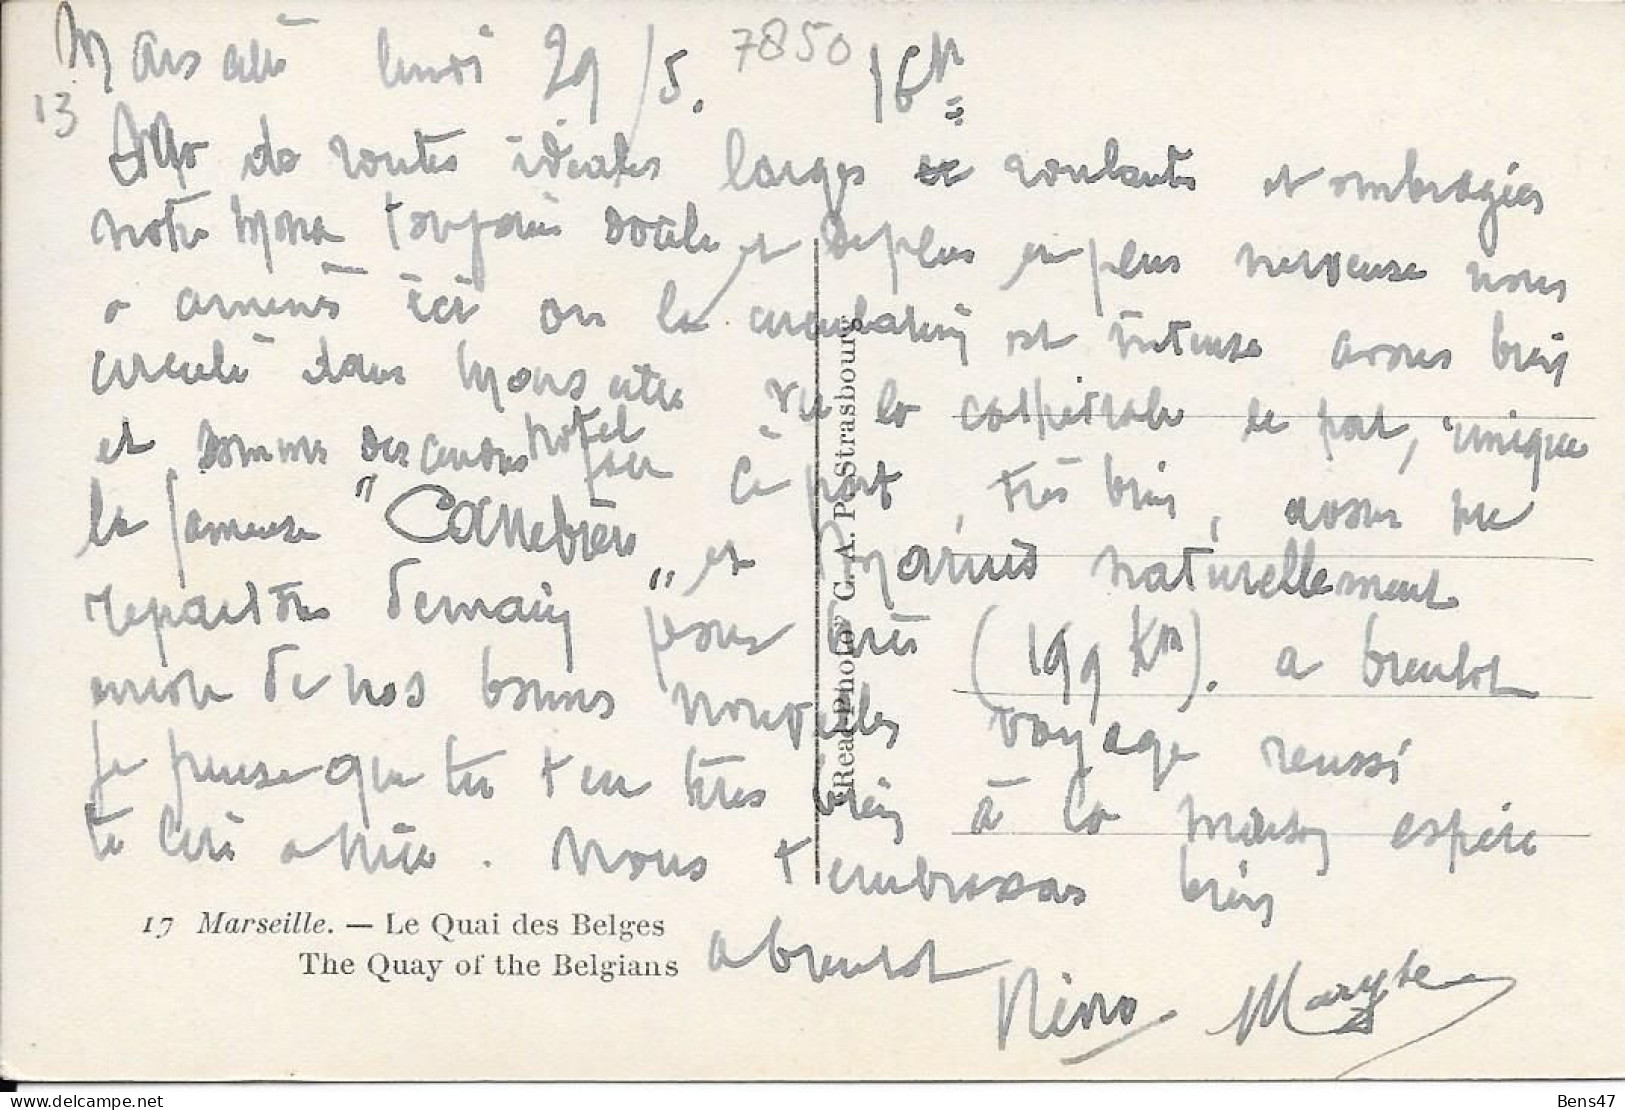 Marseille lundi 29/5. 7850 16h
13
de routes idéales larges et roulantes et ombragées
notre Mona toujours docile et de plus en plus nerveuse nous
a amenés ici ou la circulation est intense avons bien
circulé dans Marseille vu la cathédrale le port, unique
et sommes descendus hotel sur à part, très bien, avons vu
la fameuse "Cannebière" et Marius naturellement
repartons demain pour (199 Km). a bientot
encore de nos bonnes nouvelles voyage reussi
je pense que tu t'en très bien à la maison espère
te lire a Nice. Nous t'embrassons bien
a bientot
17 Marseille. — Le Quai des Belges
The Quay of the Belgians
Real-Photo C. A. P. Strasbourg
Bens47